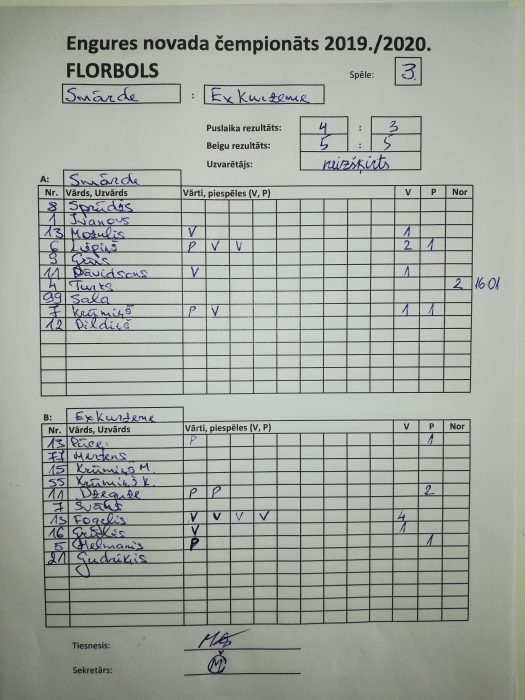 Engures novada čempionāts 2019./2020.
FLORBOLS
Spēle: 3.
Smārde : Ex Kurzeme
Puslaika rezultāts: 4 : 3
Beigu rezultāts: 5 : 5
Uzvarētājs: neizšķirts
A: Smārde
Nr. Vārds, Uzvārds Vārti, piespēles (V, P) V P Nor
8 Sprūdžs
1 Ivanovs
13 V 1
6 Liepiņš P V V 2 1
9
11 Dāvidsons V 1
4 Turks 2 16:01
99 Sala
7 Krūmiņš P V 1 1
12
B: Ex Kurzeme
Nr. Vārds, Uzvārds Vārti, piespēles (V, P) V P Nor
13 P 1
77 Mertens
15 Krūmiņš M.
55 Krūmiņš K.
11 P P 2
7
13 Fogelis V V V V 4
16 V 1
5 Helmanis P 1
21
Tiesnesis:
Sekretārs: